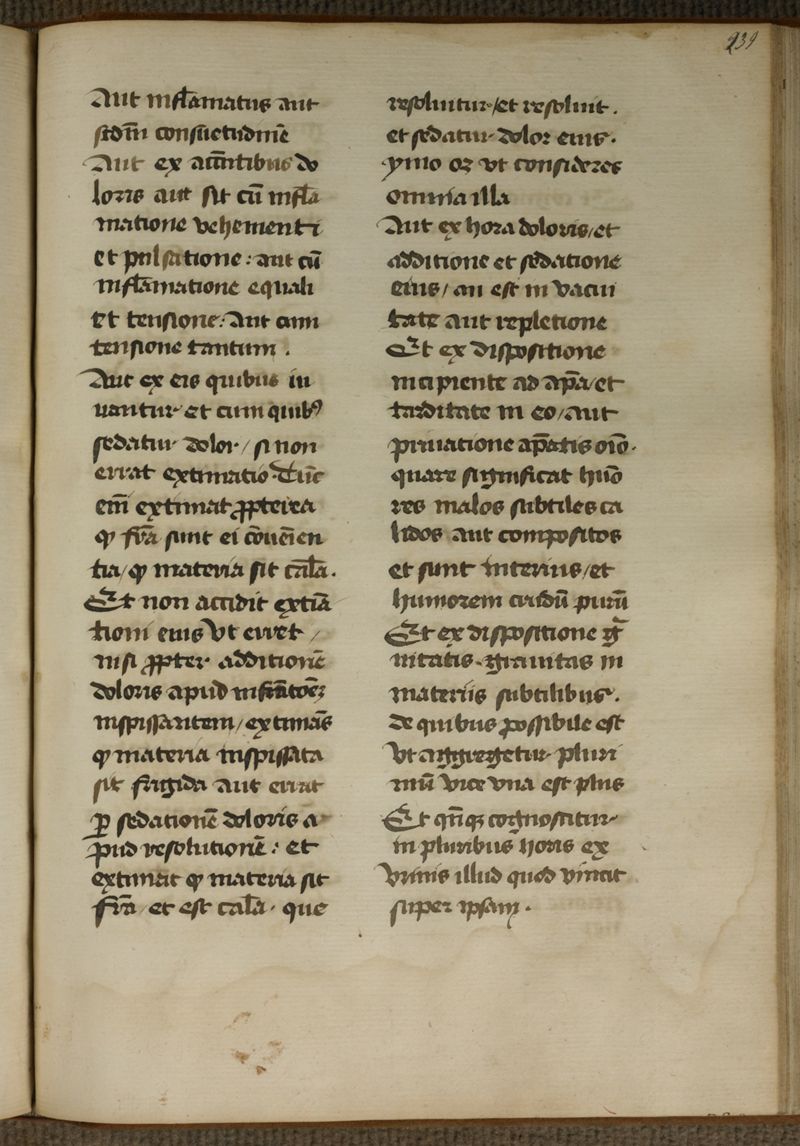 239
Aut inflamatus aut
scḋm consuetudinē
Aut ex accn̄tibus do
loris aut sit cū infla
matione vehementi
et pulsatione : aut cū
inflamatione equali
et tensione. Aut cum
tensione tantum .
Aut ex eis quibus iu
uantur et cum quibꝰ
sedatur dolor / si non
errat extimatio
em̄ extimat ꝓpterea
ꝙ fr̄a sunt ei cōueien
tia / ꝙ materia sit cal̄a .
Et non accidit extīa
tioni eius vt erret /
nisi ꝓpter additionē
doloris apud
inspissantem / extimās
ꝙ materia inspissata
sit frigida aut errat
ꝑ sedationē doloris a
pud resolutionē : et
extimat ꝙ materia sit
fr̄a et est cal̄a . que
resoluitur / et resoluit .
et sedatur dolor eius .
ymo oꝫ vt consideres
omnia illa
Aut ex hora doloris / et
additione et sedatione
eius / an est in vacui
tate aut repletione
Et ex dispositione
incipiente ad ap̄a / et
tarditate in eo / aut
priuatione ap̄atis oīo .
quare significat huō
res malos subtiles ca
lidos aut compositos
et sunt interius / et
humorem crudū purū
Et ex dispositione gr̄
uitatis . grauitas in
materiis subtilibus .
de quibus possibile est
vt aggregetur pluri
mū vice vna est plus
Et qn̄qꝫ cognoscitur
in pluribus horis ex
vrinis illud quod vincit
super ipsam .